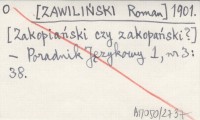 O [ZAWILIŃSKI Roman] 1901.
[Zakopiański czy zakopański?]
– Poradnik Językowy 1, nr 3:
38.